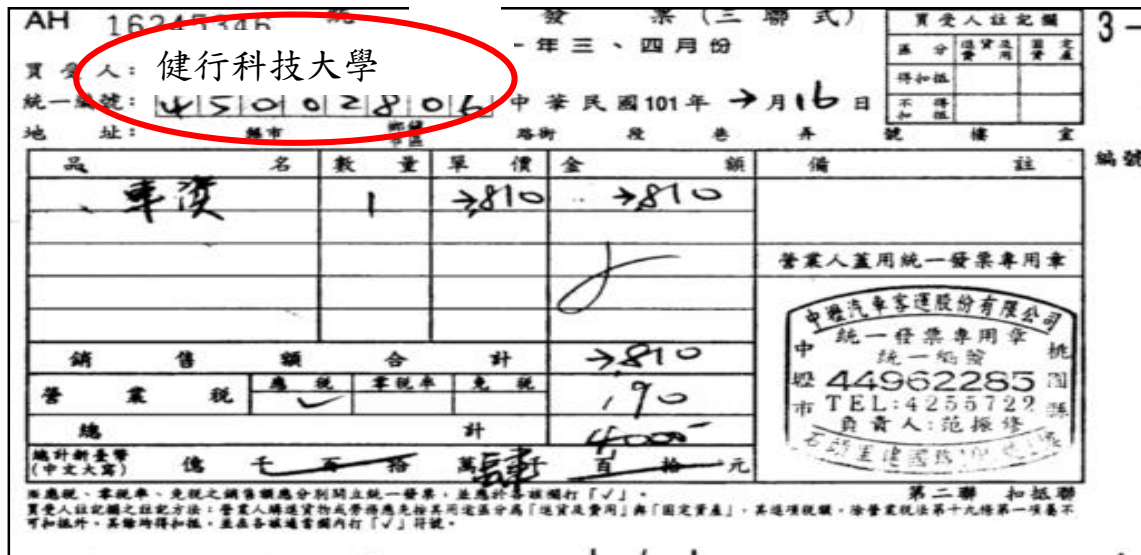 AH 16245346 發 票 (三 聯 式)
年 三 、 四 月 份
買 受 人 : 健行科技大學
統一編號: 45002806 中 華 民 國 101 年 月 16 日
地 址: 縣市 鄉鎮市區 路街 段 巷 弄 號 樓 室
買 受 人 註 記 欄
區 分 進貨及費用 固定資產
得扣抵
不得扣抵
3 -
編號
品 名 數 量 單 價 金 額 備 註
車資 1 3,810 3,810
營業人蓋用統一發票專用章
銷 售 額 合 計 3,810
營 業 稅 應 稅 ✓ 零稅率 免 稅 190
總 計 4000
總計新臺幣(中文大寫) 億 千 百 拾 萬 肆 仟 百 拾 元
中壢汽車客運股份有限公司
統一發票專用章
統一編號
44962285
TEL:4255722
負責人:范振修
中壢市
桃園縣
第二聯 扣抵聯
※應稅、零稅率、免稅之銷售額應分別開立統一發票,並應於各該欄打「✓」。
買受人註記欄之註記方法:營業人購進貨物或勞務應先按其用途區分為「進貨及費用」與「固定資產」,其進項稅額,除營業稅法第十九條第一項屬不
可扣抵外,其餘均得扣抵,並在各該適當欄內打「✓」符號。